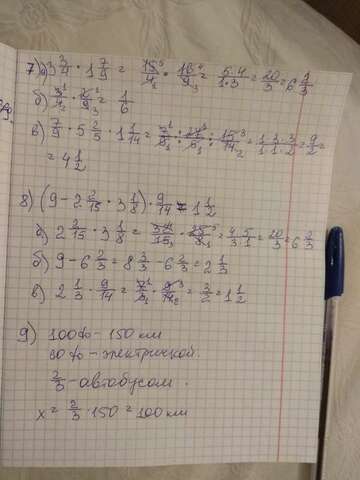 7) а) 3 3/4 · 1 7/9 = 15/4 · 16/9 = 5·4/1·3 = 20/3 = 6 1/3
б) 3/4 · 2/9 = 1/6
в) 7/9 · 5 2/5 · 1 1/14 = 7/9 · 27/5 · 15/14 = 1·3·3/1·1·2 = 9/2 =
= 4 1/2
8) (9 - 2 2/15 · 3 1/8) · 9/14 = 1 1/2
а) 2 2/15 · 3 1/8 = 32/15 · 25/8 = 4/3 · 5/1 = 20/3 = 6 2/3
б) 9 - 6 2/3 = 8 3/3 - 6 2/3 = 2 1/3
в) 2 1/3 · 9/14 = 7/3 · 9/14 = 3/2 = 1 1/2
9) 100% - 150 км
60% - электричкой.
2/3 - автобусом.
x = 2/3 · 150 = 100 км